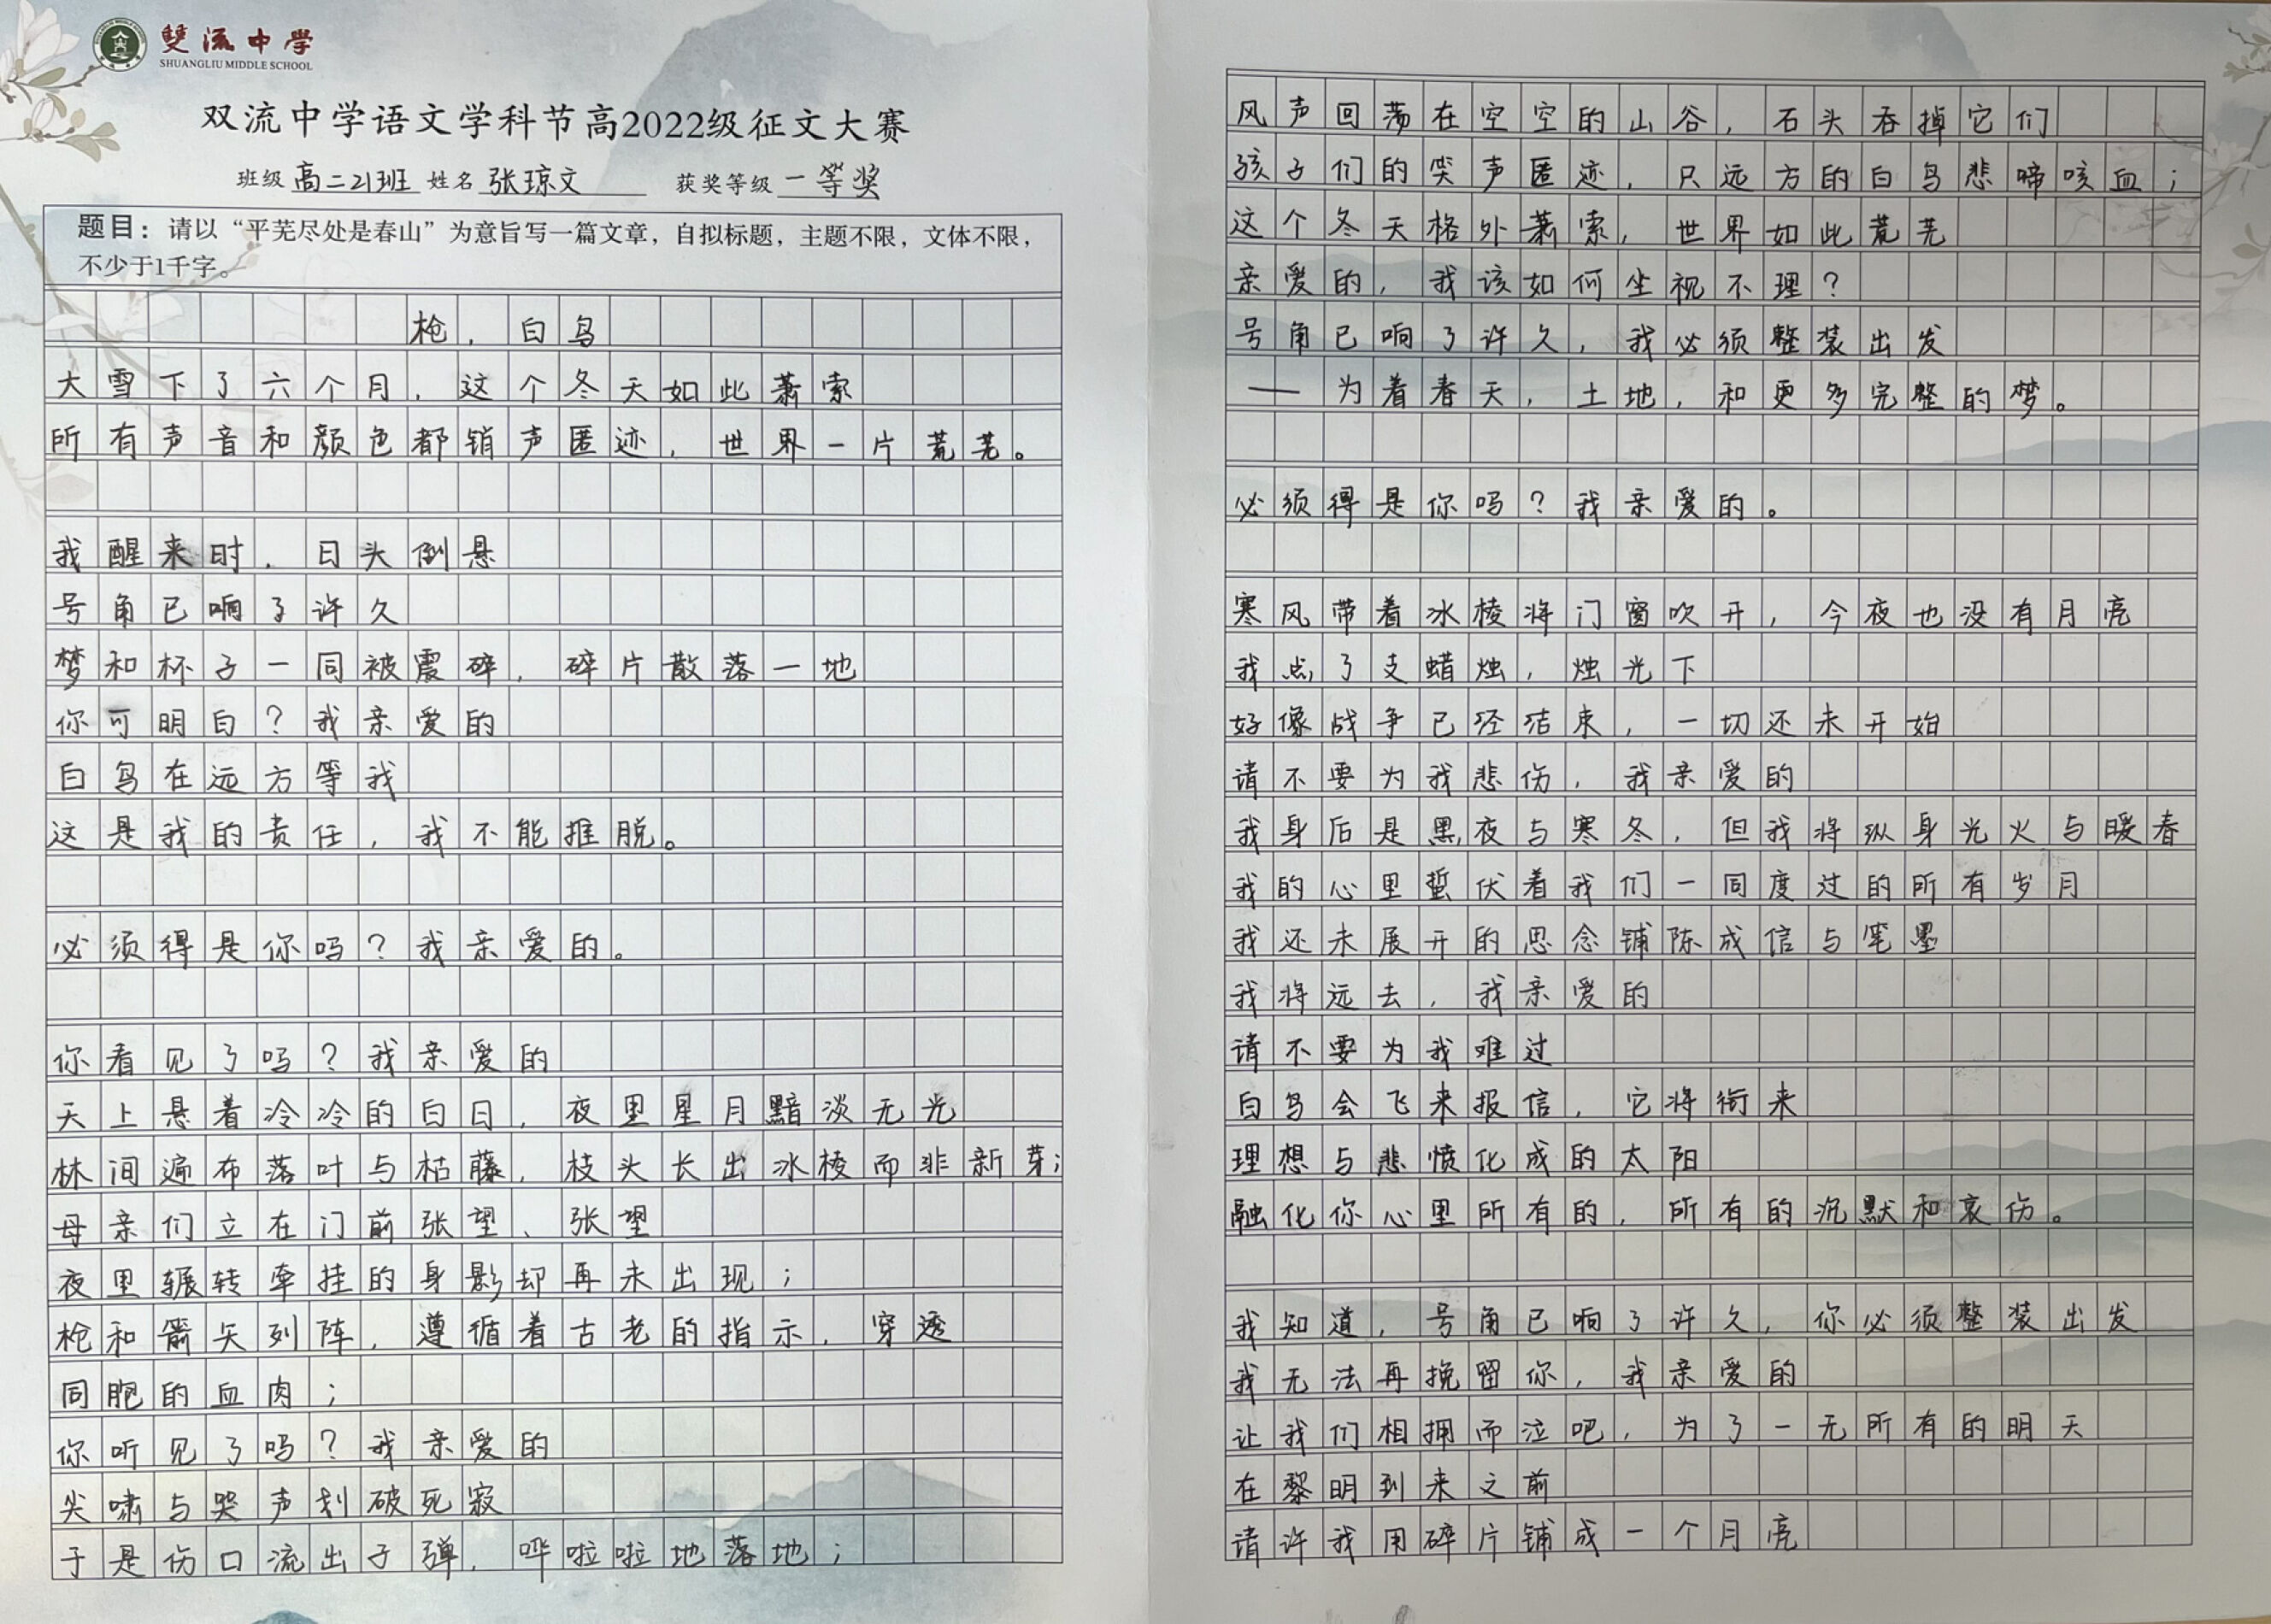 雙流中学
SHUANGLIU MIDDLE SCHOOL
双流中学语文学科节高2022级征文大赛
班级 高二21班 姓名 张琼文 获奖等级 一等奖
题目：请以“平芜尽处是春山”为意旨写一篇文章，自拟标题，主题不限，文体不限，
不少于1千字。
枪，白鸟
大雪下了六个月，这个冬天如此萧索
所有声音和颜色都销声匿迹，世界一片荒芜。
我醒来时，日头倒悬
号角已响了许久
梦和杯子一同被震碎，碎片散落一地
你可明白？我亲爱的
白鸟在远方等我
这是我的责任，我不能推脱。
必须得是你吗？我亲爱的。
你看见了吗？我亲爱的
天上悬着冷冷的白日，夜里星月黯淡无光
林间遍布落叶与枯藤，枝头长出冰棱而非新芽；
母亲们立在门前张望、张望
夜里辗转牵挂的身影却再未出现；
枪和箭矢列阵，遵循着古老的指示，穿透
同胞的血肉；
你听见了吗？我亲爱的
尖啸与哭声划破死寂
于是伤口流出子弹，哗啦啦地落地；
风声回荡在空空的山谷，石头吞掉它们
孩子们的笑声匿迹，只远方的白鸟悲啼咳血；
这个冬天格外萧索，世界如此荒芜
亲爱的，我该如何坐视不理？
号角已响了许久，我必须整装出发
——为着春天，土地，和更多完整的梦。
必须得是你吗？我亲爱的。
寒风带着冰棱将门窗吹开，今夜也没有月亮
我点了支蜡烛，烛光下
好像战争已经结束，一切还未开始
请不要为我悲伤，我亲爱的
我身后是黑夜与寒冬，但我将纵身光火与暖春
我的心里蜇伏着我们一同度过的所有岁月
我还未展开的思念铺陈成信与笔墨
我将远去，我亲爱的
请不要为我难过
白鸟会飞来报信，它将衔来
理想与悲愤化成的太阳
融化你心里所有的，所有的沉默和哀伤。
我知道，号角已响了许久，你必须整装出发
我无法再挽留你，我亲爱的
让我们相拥而泣吧，为了一无所有的明天
在黎明到来之前
请许我用碎片铺成一个月亮